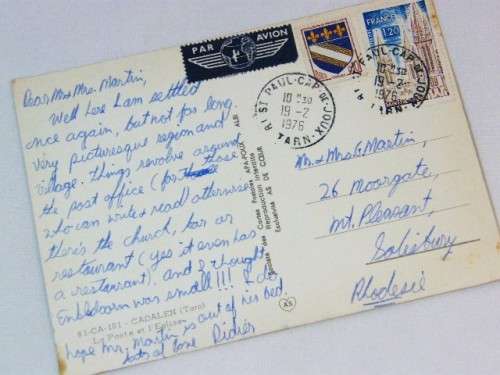 PAR AVION
FRANCE
1,20
ST PAUL-CAP-DE-JOUX
10 H30
19-2
1976
TARN
ST PAUL-CAP-DE-JOUX
10 H30
19-2
1976
TARN
Dear Mr & Mrs. Martin,
Well here I am settled
once again, but not for long.
Very picturesque region and
village. Things revolve around
the post office (for those
who can write & read) otherwise
there's the church, bar or
restaurant (yes it even has
a restaurant). and I thought
was small!!! I do
hope Mr. Martin is out of his bed
lots of love Didier
81-CA-101 - CADALEN (Tarn)
La Poste et l'Eglise
Cartes Postales APA-POUX ALBI
Reproduction Interdite
Exclusivité AS DE CŒUR
AS
Mr & Mrs G. Martin,
26 Moorgate,
Mt. Pleasant,
Salisbury
Rhodesie